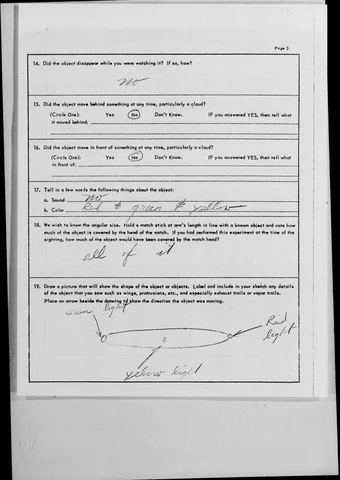 Page 3
14. Did the object disappear while you were watching it? If so, how?
no
15. Did the object move behind something at any time, particularly a cloud?
(Circle One): Yes No Don't Know. IF you answered YES, then tell what
it moved behind:
16. Did the object move in front of something at any time, particularly a cloud?
(Circle One): Yes No Don't Know. IF you answered YES, then tell what
in front of:
17. Tell in a few words the following things about the object:
a. Sound no
b. Color Red & green & yellow
18. We wish to know the angular size. Hold a match stick at arm's length in line with a known object and note how
much of the object is covered by the head of the match. If you had performed this experiment at the time of the
sighting, how much of the object would have been covered by the match head?
all of it
19. Draw a picture that will show the shape of the object or objects. Label and include in your sketch any details
of the object that you saw such as wings, protrusions, etc., and especially exhaust trails or vapor trails.
Place an arrow beside the drawing to show the direction the object was moving.
light
Red
light
yelow light